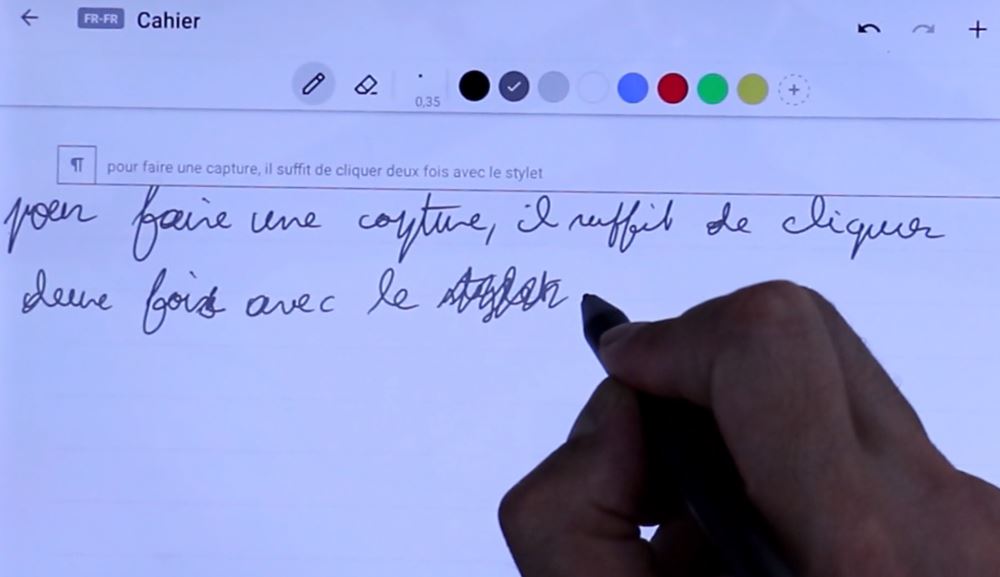 FR-FR Cahier
0,35
pour faire une capture, il suffit de cliquer deux fois avec le stylet
pour faire une capture, il suffit de cliquer
deux fois avec le